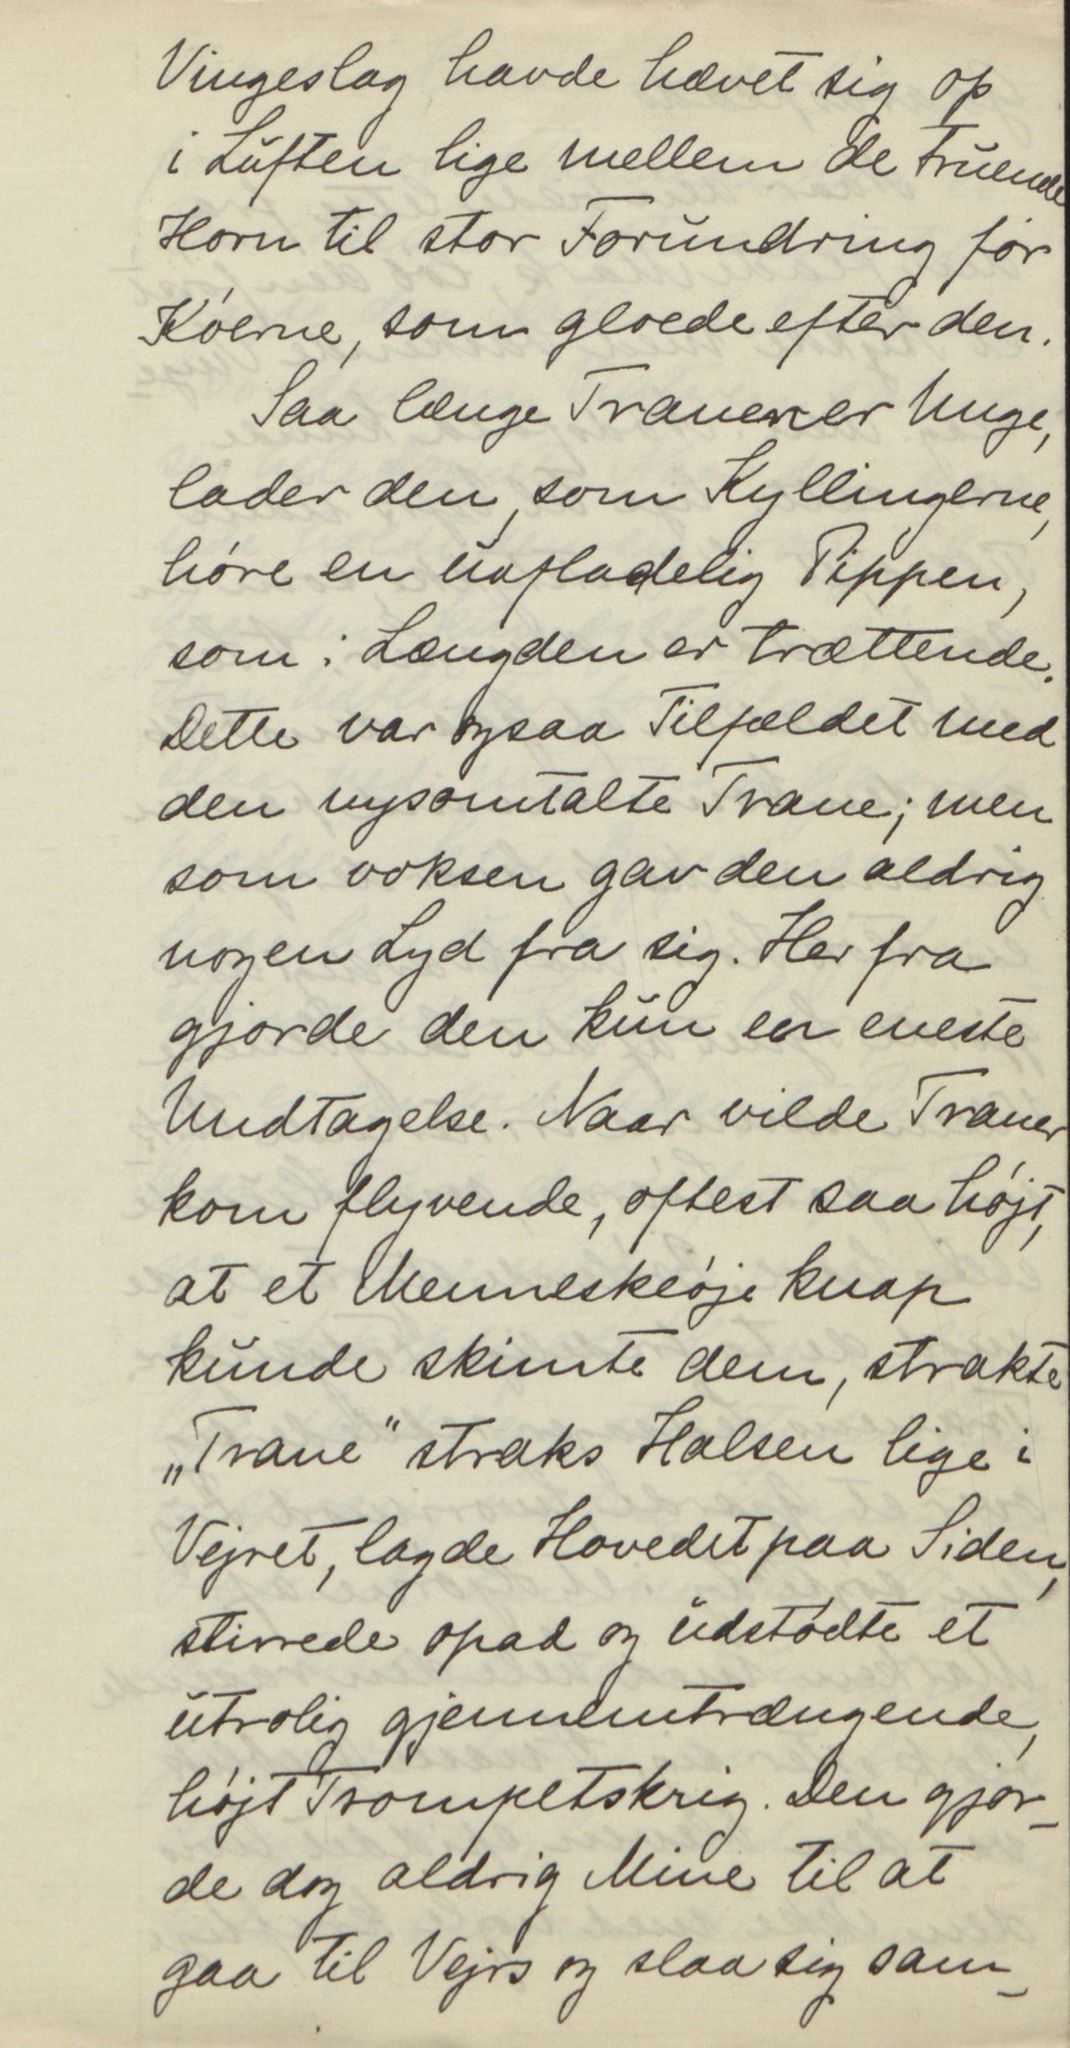 Vingeslag havde hævet sig op
i Luften lige mellem de truende
Horn til stor Forundring for
Køerne, som gloede efter den.
Saa længe Tranen er Unge,
lader den, som Kyllingerne,
høre en uafladelig Pippen,
som i Længden er trættende.
Dette var ogsaa Tilfældet med
den nysomtalte Trane; men
som voksen gav den aldrig
nogen Lyd fra sig. Her fra
gjorde den kun en eneste
Undtagelse. Naar vilde Traner
kom flyvende, oftest saa højt,
at et Menneskeøje knap
kunde skimte dem, strakte
„Trane" straks Halsen lige i
Vejret, lagde Hovedet paa Siden,
stirrede opad og udstødte et
utrolig gjennemtrængende,
højt Trompetskrig. Den gjor-
de dog aldrig Mine til at
gaa til Vejrs og slaa sig sam-